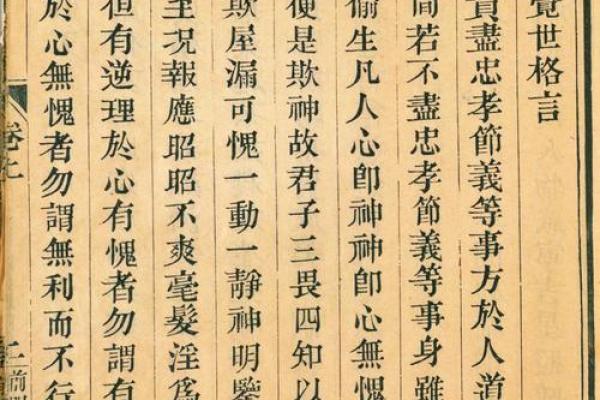 覺世格言
貴盡忠孝節義等事方於人道
間若不盡忠孝節義等事身雖
偷生凡人心卽神神卽心無愧
便是欺神故君子三畏四知以
欺屋漏可愧一動一靜神明鑒
至况報應昭昭不爽毫髮淫爲
但有逆理於心有愧者勿謂有
於心無愧者勿謂無利而不行
卷上
二